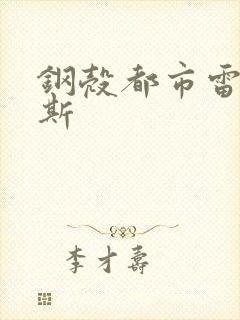 鋼殼都市雷
斯
李才壽